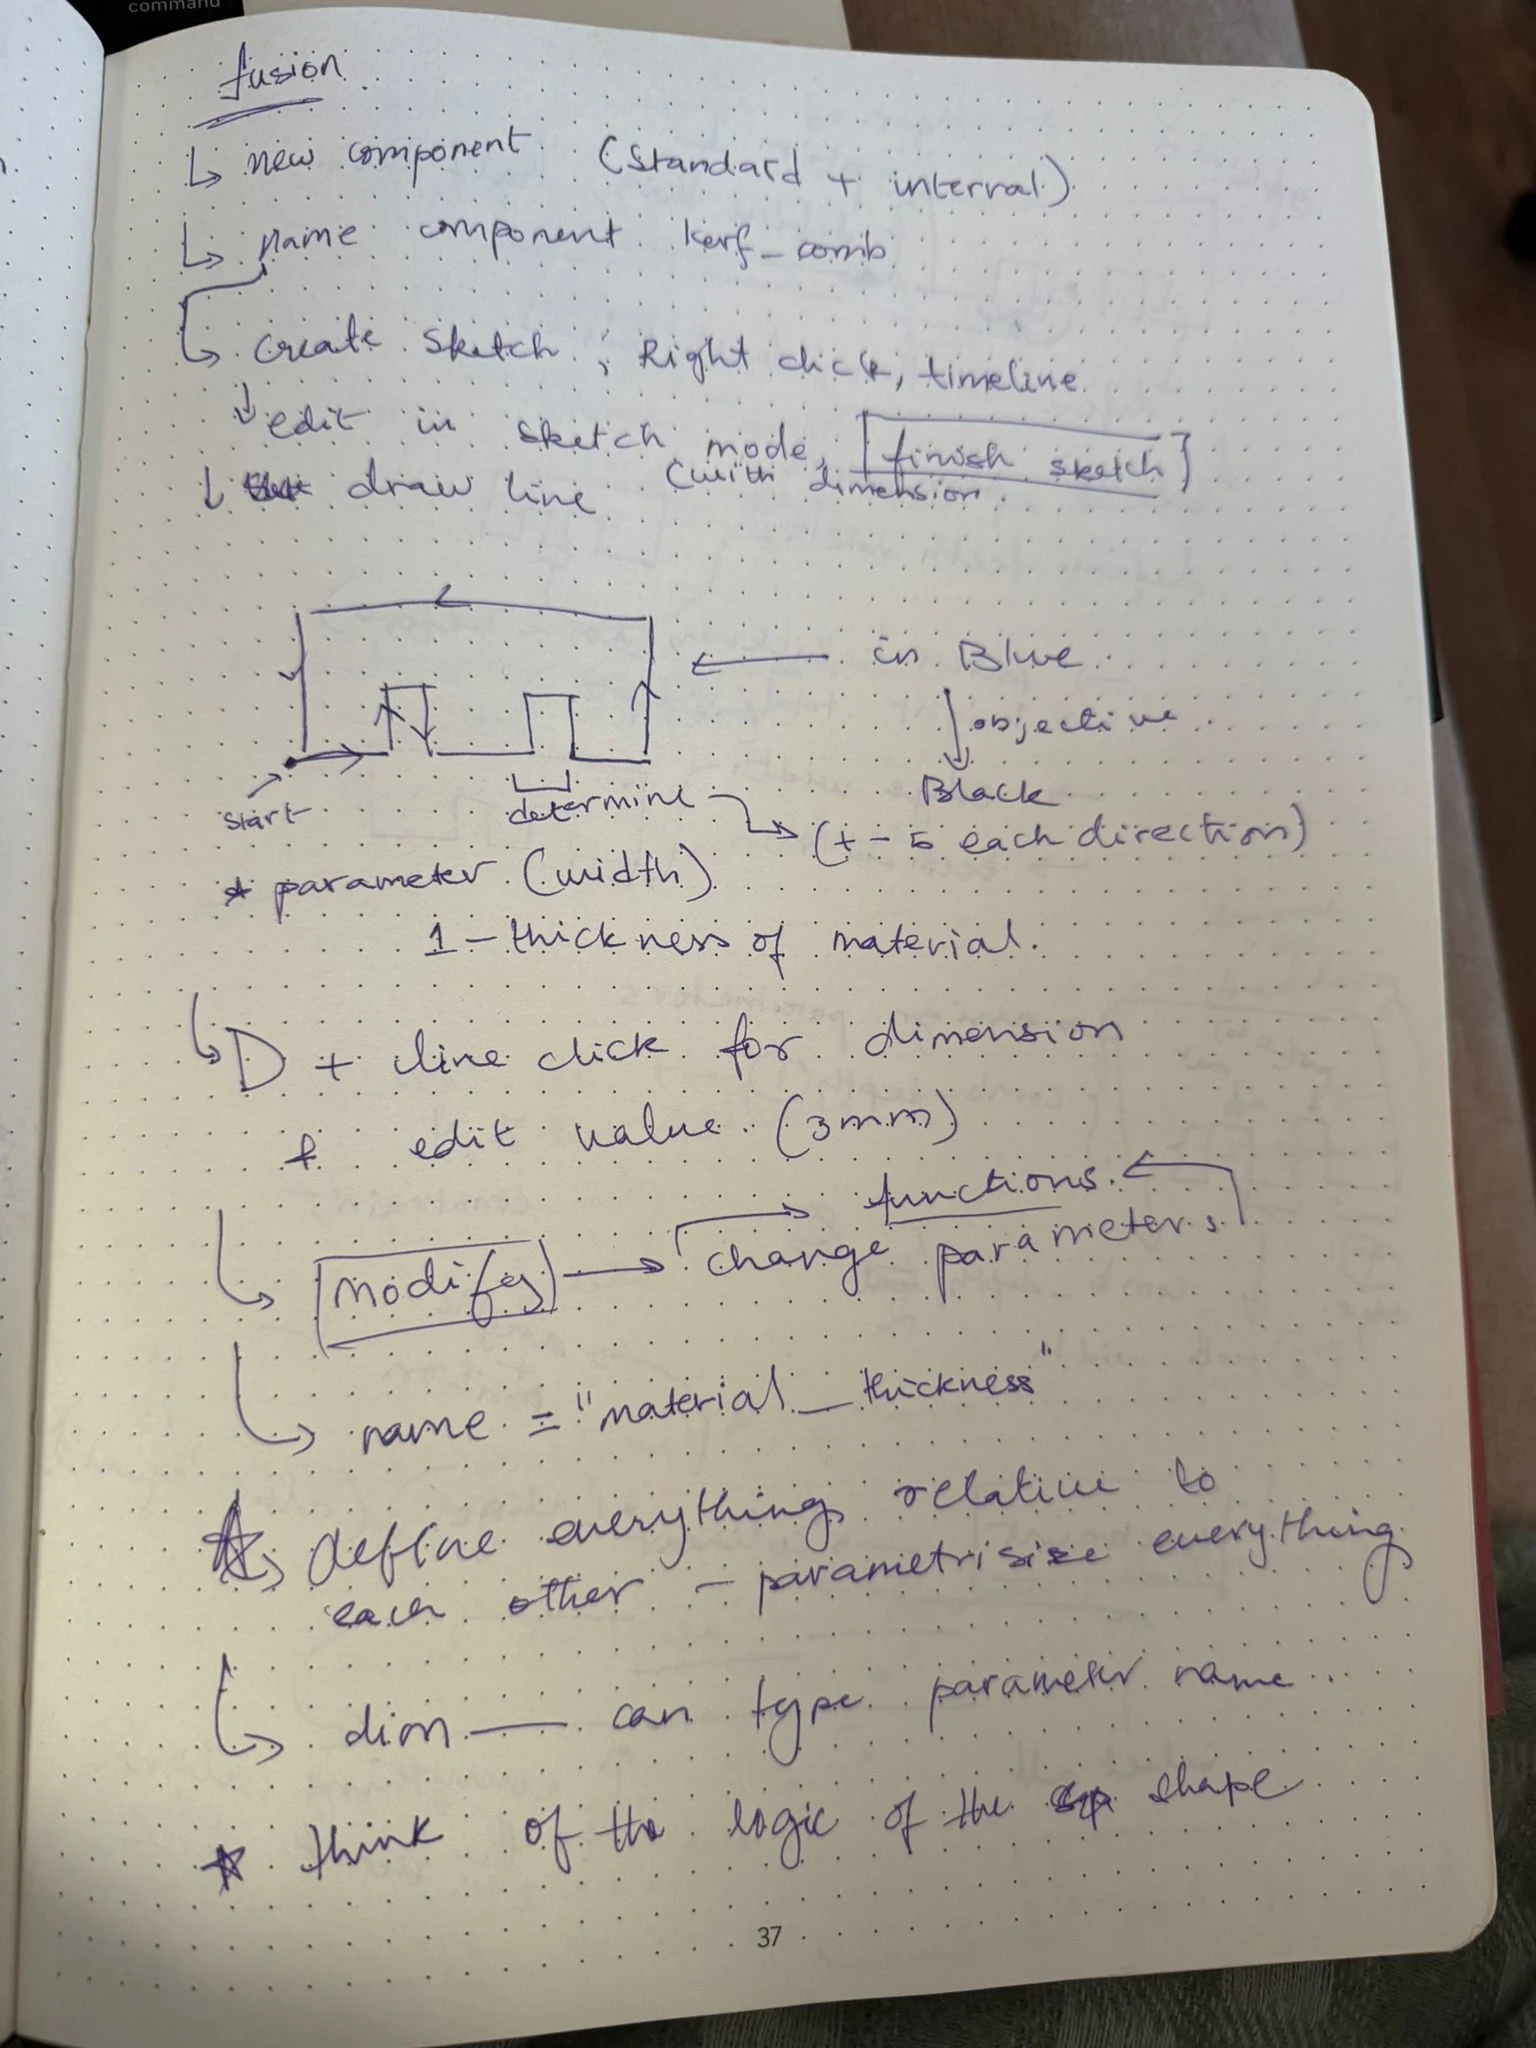 command
fusion
↳ new component (standard + interval)
↳ name component kerf_comb
↳ create sketch, Right click, timeline
↓ edit in sketch mode, [finish sketch]
↓ draw line (with dimension.
← in Blue
↓ objective
Black
start
determine
(+ - 5 each direction)
* parameter (width)
1 - thickness of material.
↳ D + line click for dimension
& edit value (3mm)
functions
↳ Modify → change parameters
↳ name = "material_thickness"
☆ ↳ define everything relative to
each other - parametrisize everything
↳ dim — can type parameter name..
☆ think of the logic of the shape
37